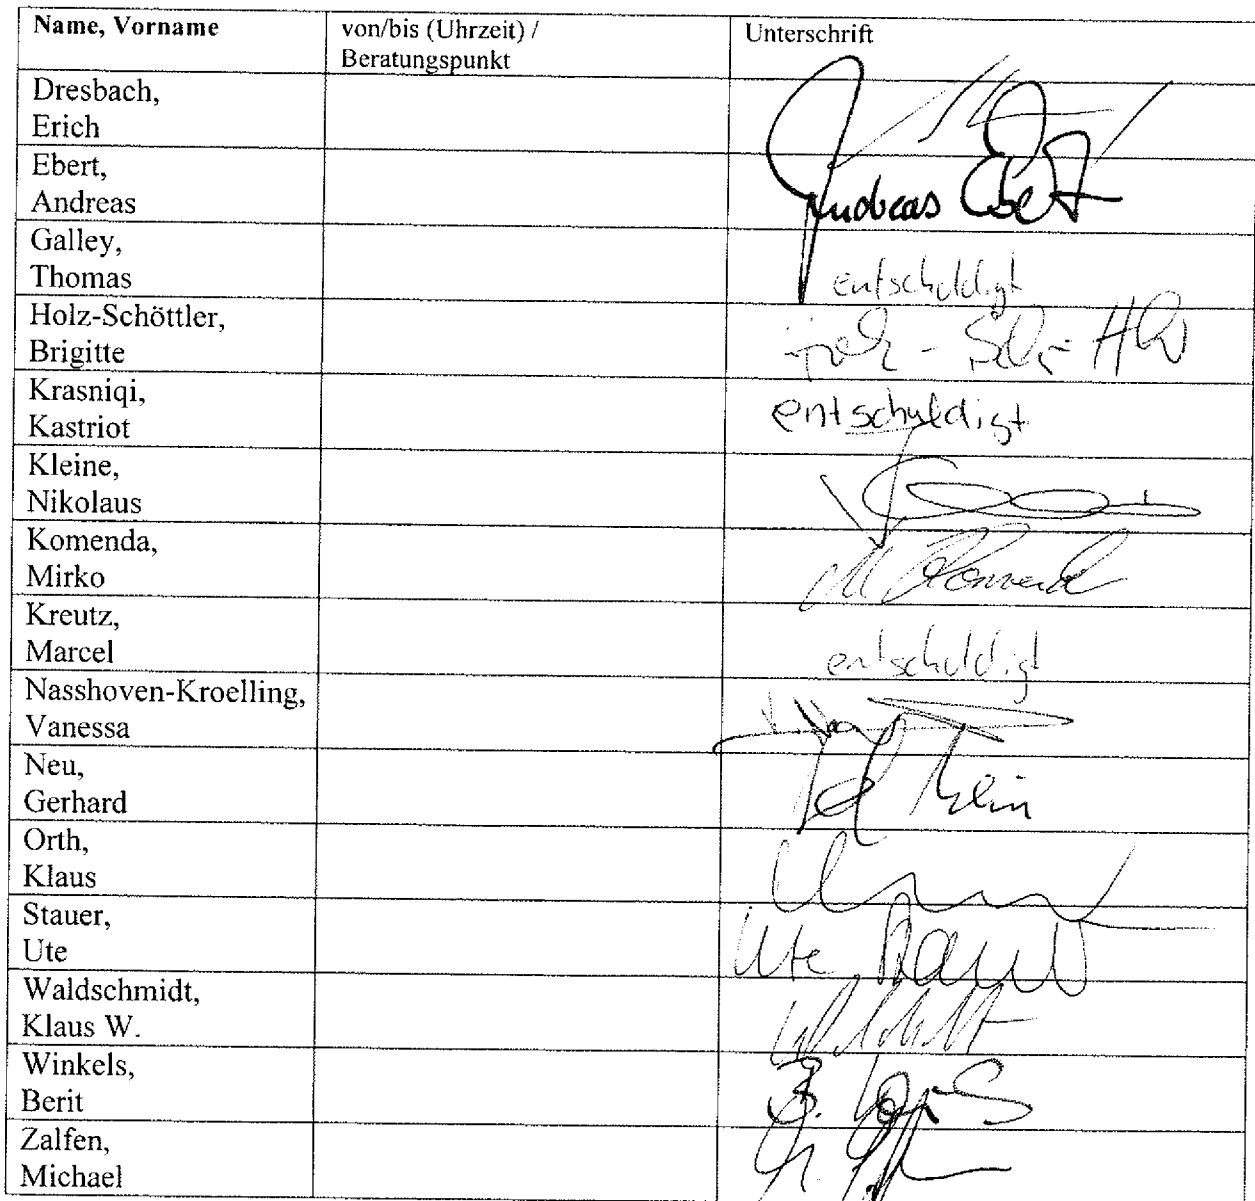 Name, Vorname von/bis (Uhrzeit) / Unterschrift
Beratungspunkt
Dresbach,
Erich
Ebert,
Andreas Andreas Ebert
Galley,
Thomas entschuldigt
Holz-Schöttler,
Brigitte
Krasniqi,
Kastriot entschuldigt
Kleine,
Nikolaus
Komenda,
Mirko M. Komenda
Kreutz,
Marcel entschuldigt
Nasshoven-Kroelling,
Vanessa
Neu,
Gerhard
Orth,
Klaus
Stauer,
Ute Ute Stauer
Waldschmidt,
Klaus W.
Winkels,
Berit
Zalfen,
Michael